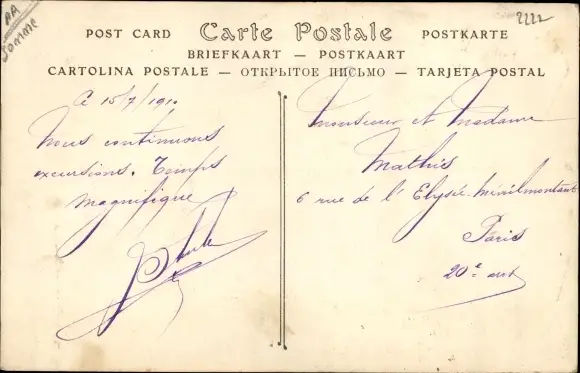 AA
Somme
2222
POST CARD Carte Postale POSTKARTE
BRIEFKAART — POSTKAART
CARTOLINA POSTALE — ОТКРЫТОЕ ПИСЬМО — TARJETA POSTAL
Ce 15/7/910
Nous continuons
excursions. Temps
magnifique
Monsieur et Madame
Mathis
6 rue de l'Elysée-Ménilmontant
Paris
20e arrt